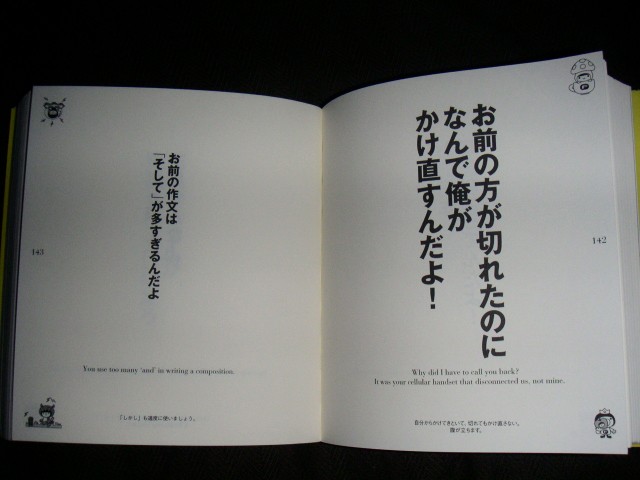 お前の方が切れたのに
なんで俺が
かけ直すんだよ！
142
Why did I have to call you back?
It was your cellular handset that disconnected us, not mine.
自分からかけてきといて、切れてもかけ直さない。
腹が立ちます。
お前の作文は
「そして」が多すぎるんだよ
143
You use too many 'and' in writing a composition.
「しかし」も適度に使いましょう。